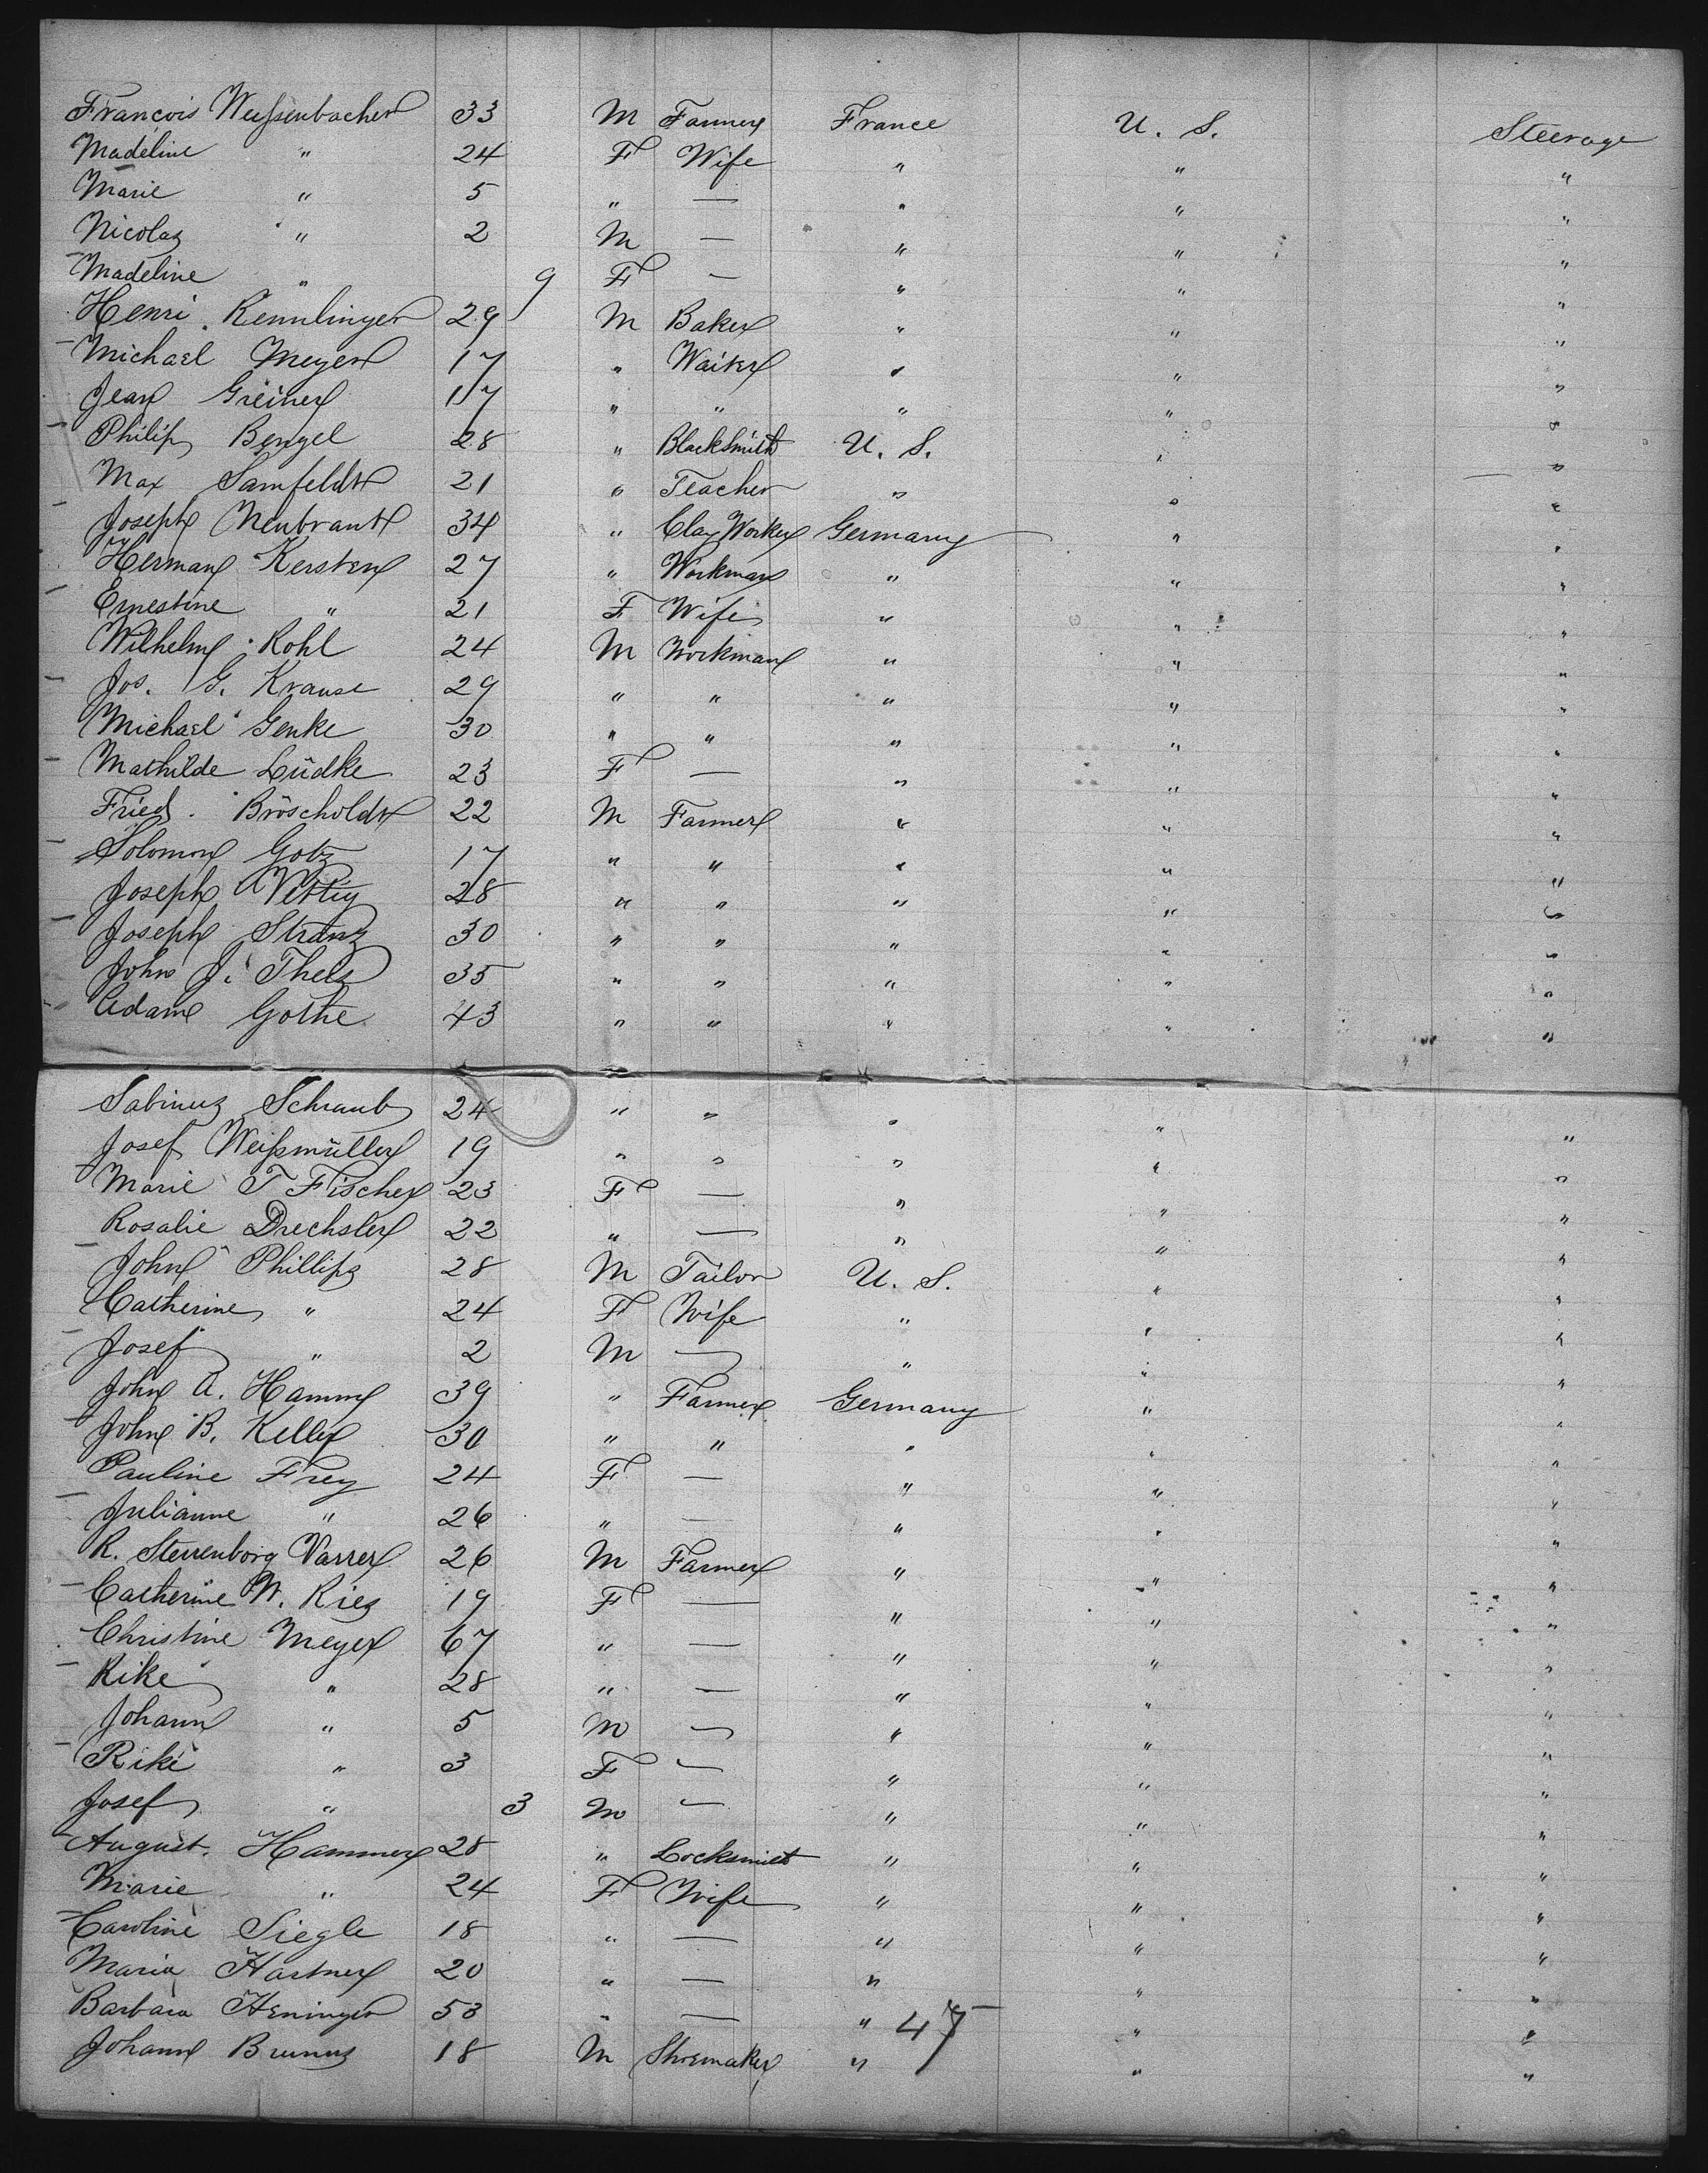 François Weissenbacher 33 M Farmer France U. S. Steerage
Madeline " 24 F Wife " " "
Marie " 5 " — " " "
Nicolas " 2 M — " " "
Madeline " 9 F — " " "
Henri Rennlinger 29 M Baker " " "
Michael Meyer 17 " Waiter " " "
Jean Greiner 17 " " " " "
Philip Bengel 28 " Blacksmith U. S. " "
Max Samfeldt 21 " Teacher " " "
Joseph Neubrant 34 " Clay Worker Germany " "
Herman Kersten 27 " Workman " " "
Ernestine " 21 F Wife " " "
Wilhelm Kohl 24 M Workman " " "
Jos. G. Krause 29 " " " " "
Michael Genke 30 " " " " "
Mathilde Lüdke 23 F — " " "
Fried. Bröscholdt 22 M Farmer " " "
Solomon Gotz 17 " " " " "
Joseph Vettig 28 " " " " "
Joseph Stranz 30 " " " " "
John J. Thels 35 " " " " "
Adam Gothe 43 " " " " "
Sabinus Schraub 24 " " " " "
Josef Weißmüller 19 " " " " "
Marie T Fischer 23 F — " " "
Rosalie Drechsler 22 " — " " "
John Phillips 28 M Tailor U. S. " "
Catherine " 24 F Wife " " "
Josef " 2 M — " " "
John A. Hamm 39 " Farmer Germany " "
John B. Keller 30 " " " " "
Pauline Frey 24 F — " " "
Julianne " 26 " — " " "
R. Sterrenborg Varrer 26 M Farmer " " "
Catherine W. Ries 19 F — " " "
Christine Meyer 67 " — " " "
Rike " 28 " — " " "
Johann " 5 M — " " "
Rike " 3 F — " " "
Josef " 3 M — " " "
August Hammer 28 " Locksmith " " "
Marie " 24 F Wife " " "
Caroline Siegle 18 " — " " "
Maria Hartner 20 " — " " "
Barbara Heninger 53 " — " 47 " "
Johann Brunns 18 M Shoemaker " " "